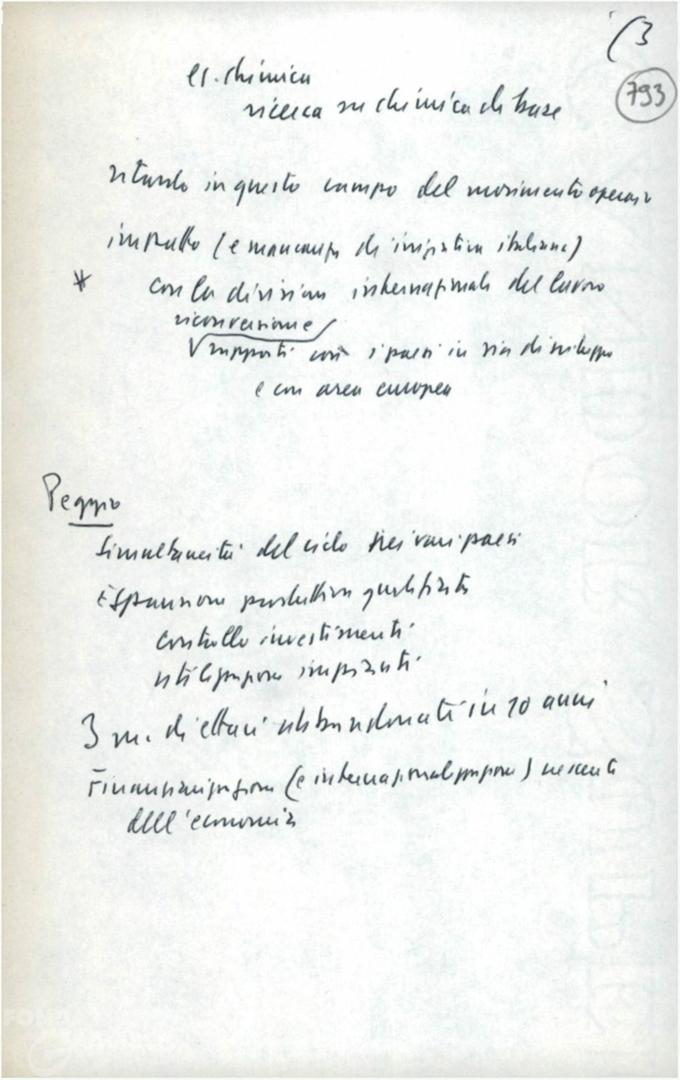 (3
793
es. chimica
ricerca su chimica di base
ritardo in questo campo del movimento operaio
impatto (e mancanza di iniziativa italiana)
* con la divisione internazionale del lavoro
riconversione
rapporti con i paesi in via di sviluppo
e con area europea
Peggio
Simultaneità del ciclo nei vari paesi
Espansione produttiva qualificata
controllo investimenti
utilizzazione impianti
3 m. di ettari abbandonati in 10 anni
Finanziarizzazione (e internazionalizzazione) crescente
dell'economia